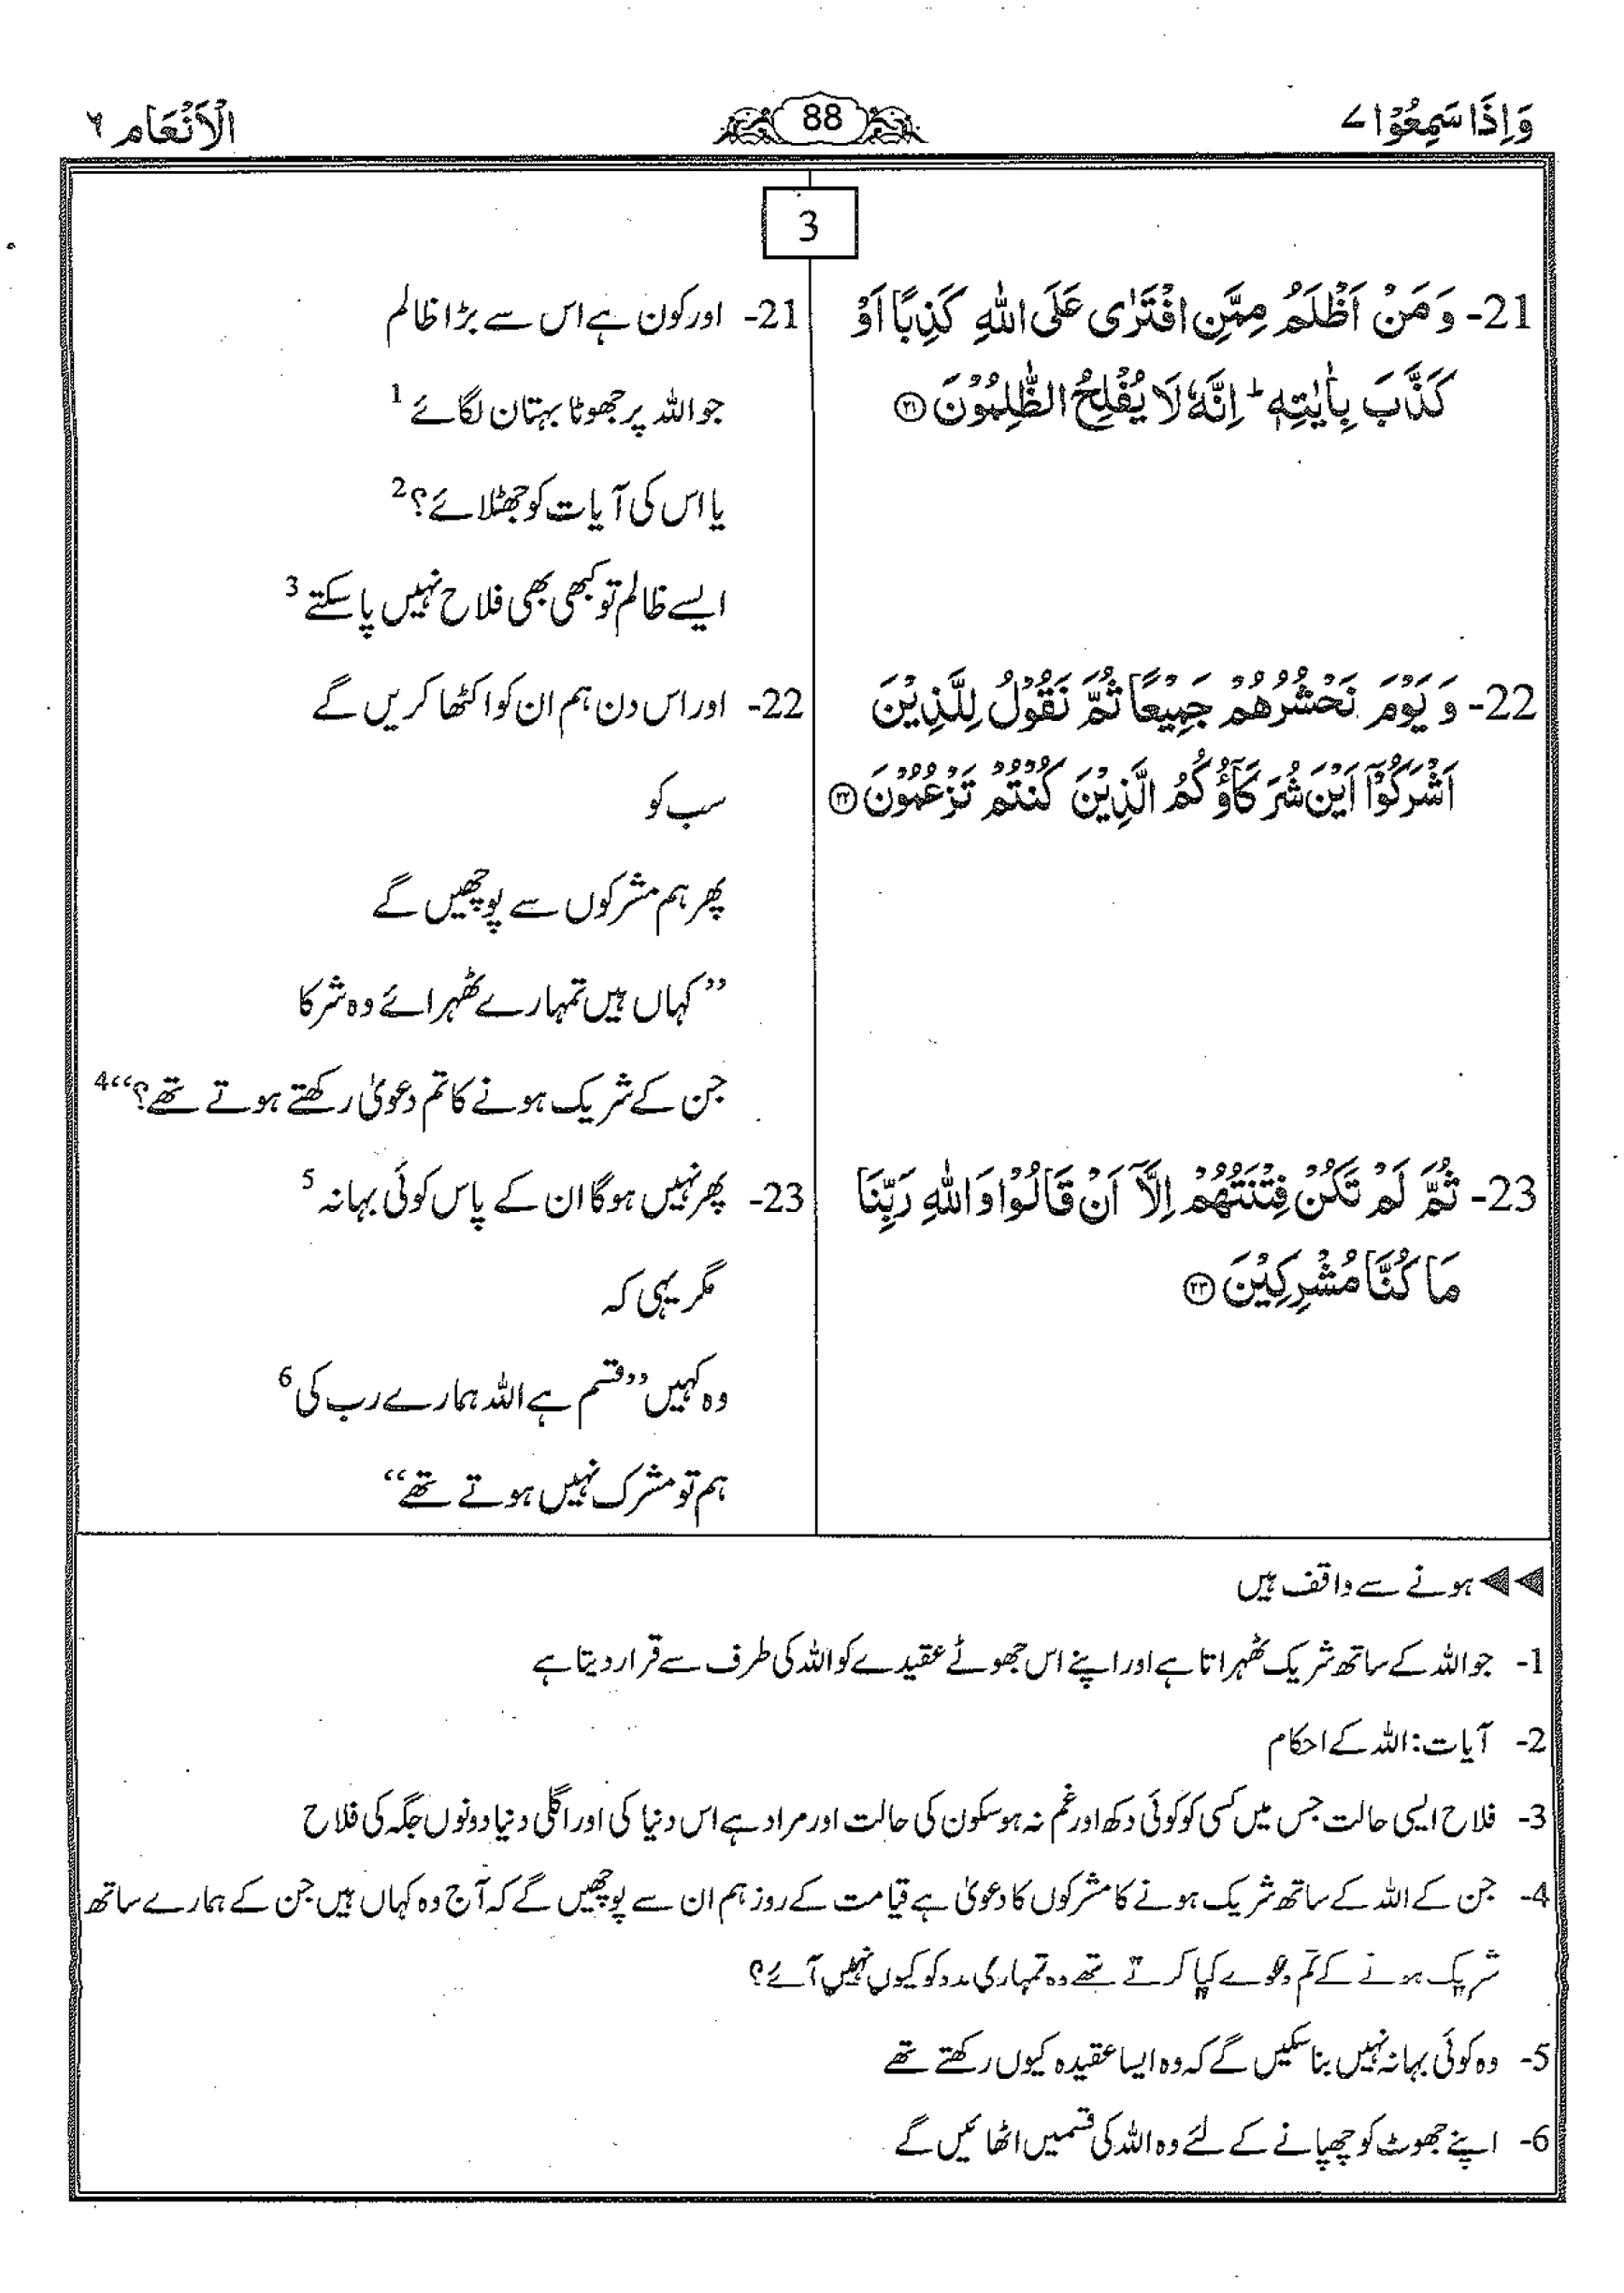 وَاِذَا سَمِعُوْا ۷
88
الْاَنْعَام ۶
3
21- وَ مَنْ اَظْلَمُ مِمَّنِ افْتَرٰى عَلَى اللّٰهِ كَذِبًا اَوْ
كَذَّبَ بِاٰيٰتِهٖ ؕ اِنَّهٗ لَا يُفْلِحُ الظّٰلِمُوْنَ ۲۱
22- وَ يَوْمَ نَحْشُرُهُمْ جَمِيْعًا ثُمَّ نَقُوْلُ لِلَّذِيْنَ
اَشْرَكُوْۤا اَيْنَ شُرَكَآؤُكُمُ الَّذِيْنَ كُنْتُمْ تَزْعُمُوْنَ ۲۲
23- ثُمَّ لَمْ تَكُنْ فِتْنَتُهُمْ اِلَّاۤ اَنْ قَالُوْا وَاللّٰهِ رَبِّنَا
مَا كُنَّا مُشْرِكِيْنَ ۲۳
21- اور کون ہے اس سے بڑا ظالم
جو اللہ پر جھوٹا بہتان لگائے 1
یا اس کی آیات کو جھٹلائے؟ 2
ایسے ظالم تو کبھی بھی فلاح نہیں پا سکتے 3
22- اور اس دن ہم ان کو اکٹھا کریں گے
سب کو
پھر ہم مشرکوں سے پوچھیں گے
”کہاں ہیں تمہارے ٹھہرائے وہ شرکا
جن کے شریک ہونے کا تم دعویٰ رکھتے ہوتے تھے؟“ 4
23- پھر نہیں ہوگا ان کے پاس کوئی بہانہ 5
مگر یہی کہ
وہ کہیں ”قسم ہے اللہ ہمارے رب کی 6
ہم تو مشرک نہیں ہوتے تھے“
◄◄ ہونے سے واقف ہیں
1- جو اللہ کے ساتھ شریک ٹھہراتا ہے اور اپنے اس جھوٹے عقیدے کو اللہ کی طرف سے قرار دیتا ہے
2- آیات: اللہ کے احکام
3- فلاح ایسی حالت جس میں کسی کو کوئی دکھ اور غم نہ ہو سکون کی حالت اور مراد ہے اس دنیا کی اور اگلی دنیا دونوں جگہ کی فلاح
4- جن کے اللہ کے ساتھ شریک ہونے کا مشرکوں کا دعویٰ ہے قیامت کے روز ہم ان سے پوچھیں گے کہ آج وہ کہاں ہیں جن کے ہمارے ساتھ
شریک ہونے کے تم دعوے کیا کرتے تھے وہ تمہاری مدد کو کیوں نہیں آئے؟
5- وہ کوئی بہانہ نہیں بنا سکیں گے کہ وہ ایسا عقیدہ کیوں رکھتے تھے
6- اپنے جھوٹ کو چھپانے کے لئے وہ اللہ کی قسمیں اٹھائیں گے